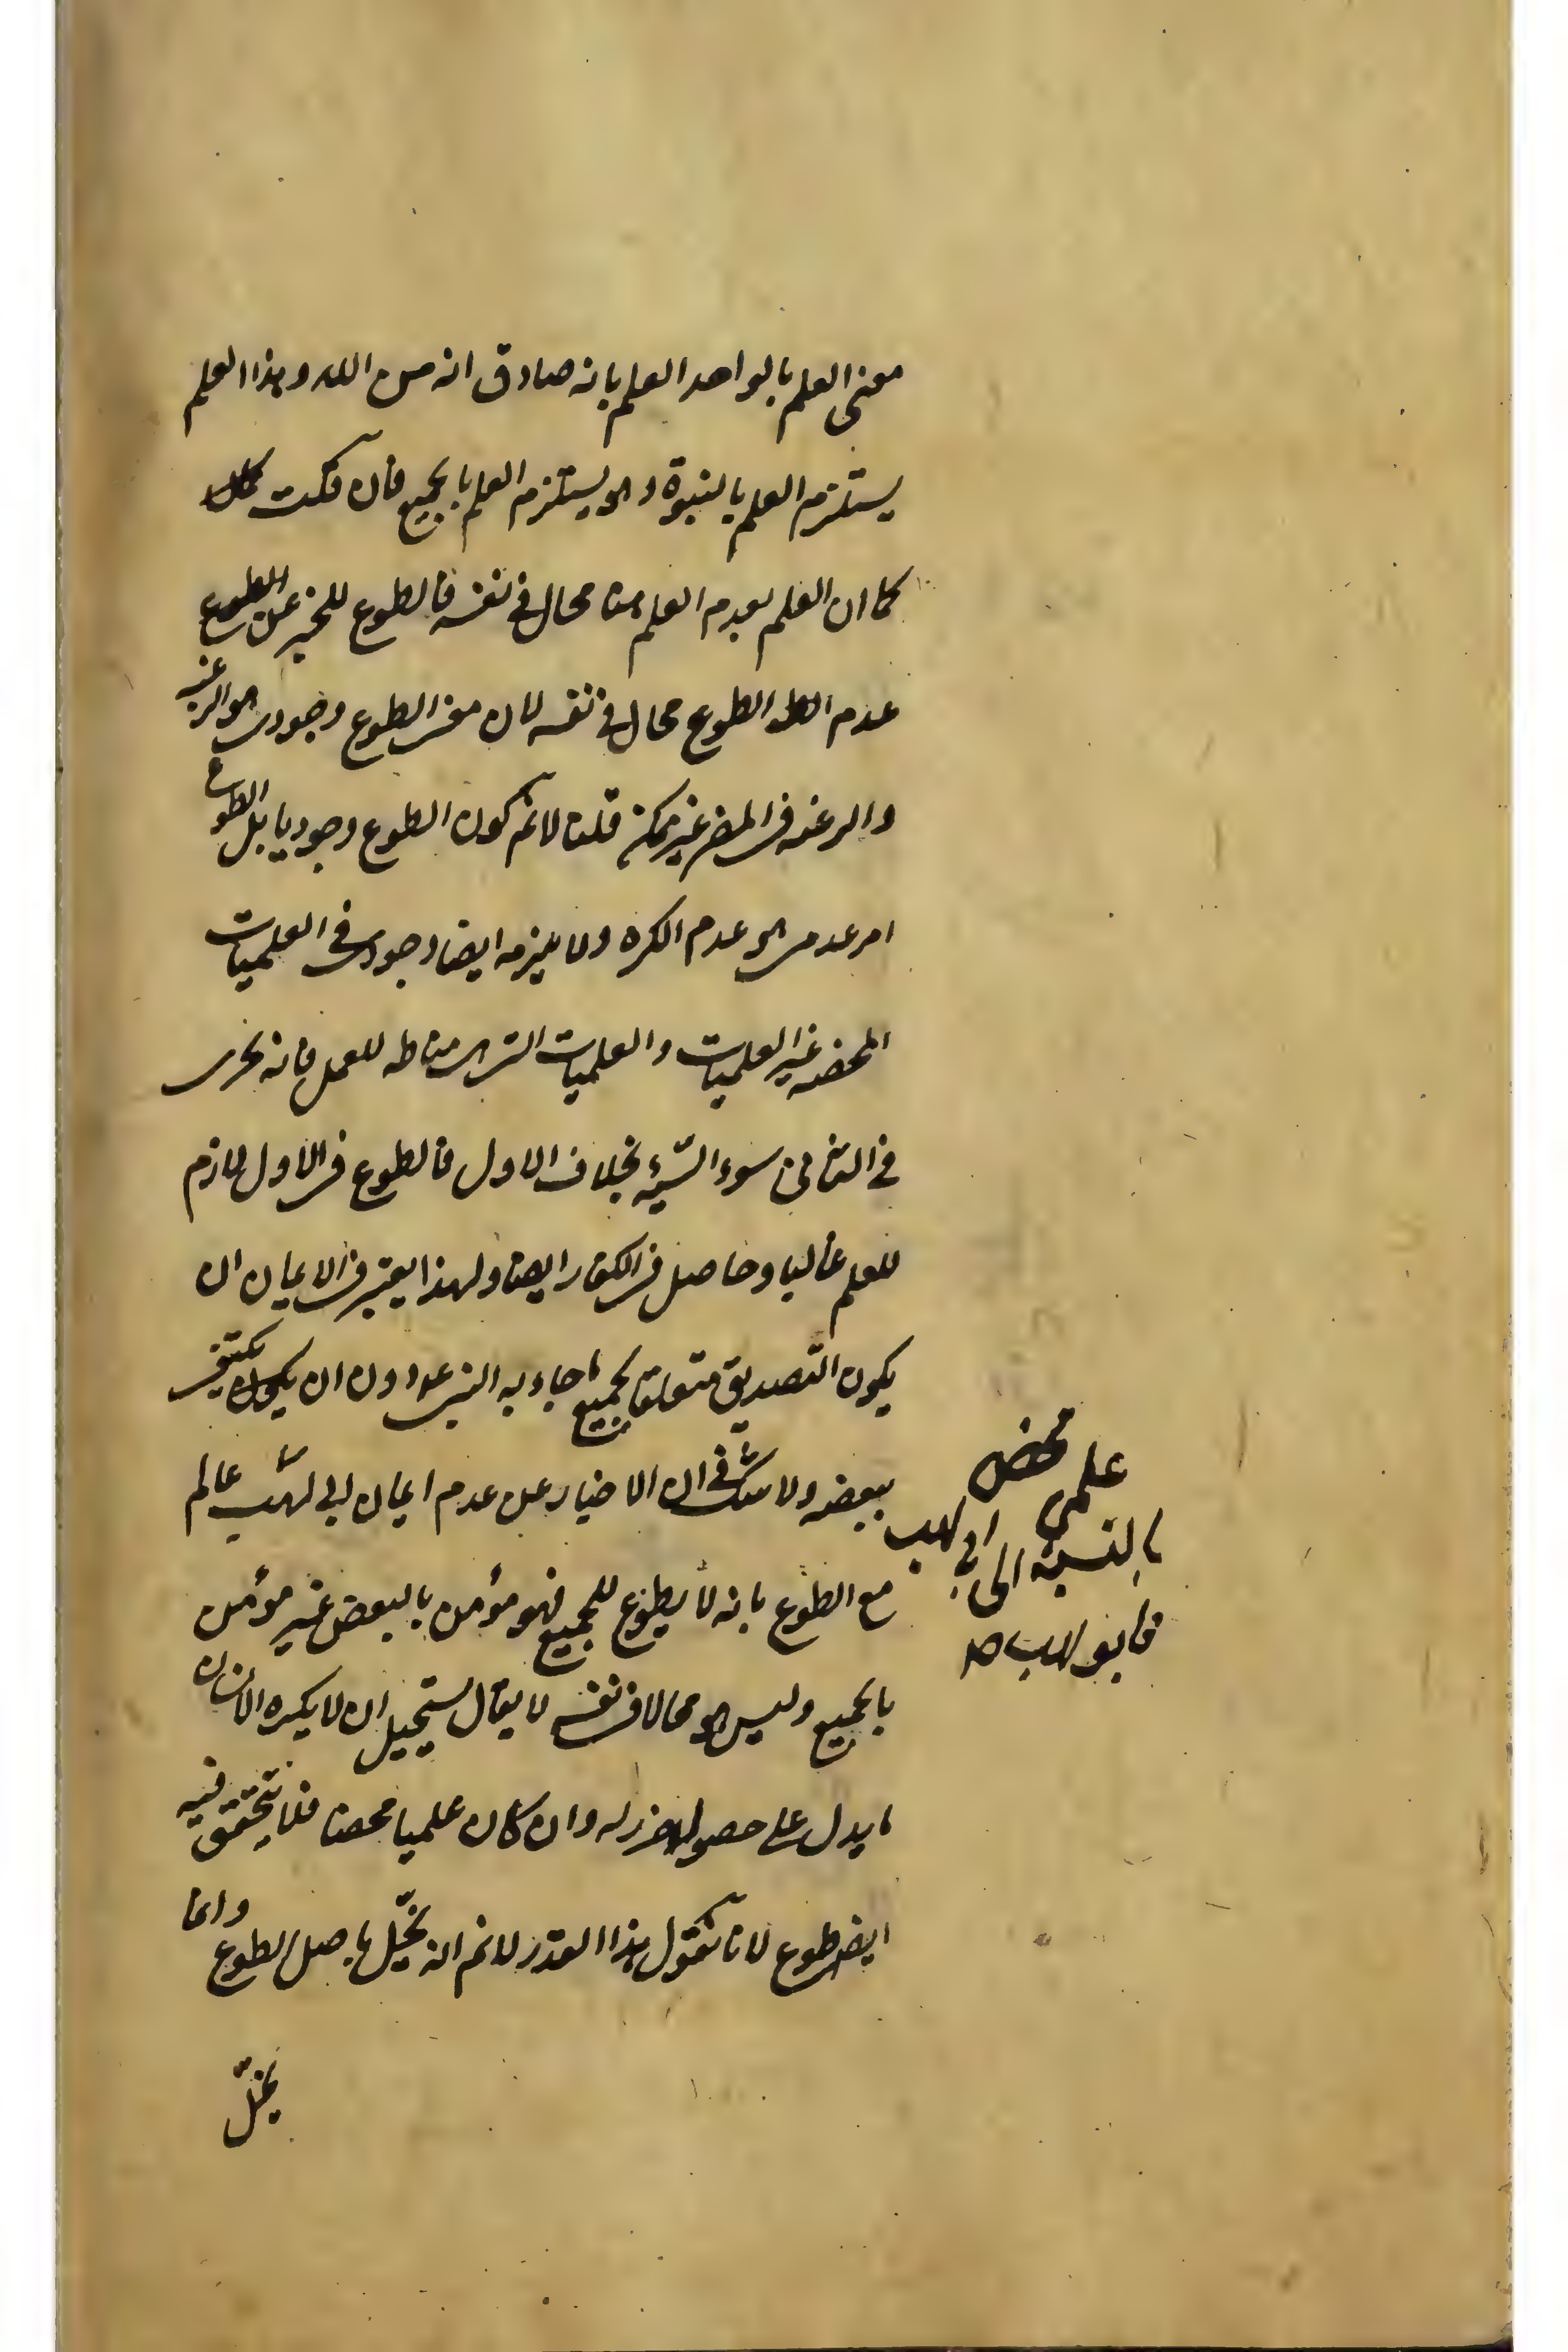 معنى العلم بالواحد العلم بانه صادق انه من الله وهذا العلم
يستلزم العلم بالنبوة وهو يستلزم العلم بالجميع فان قلت
كما ان العلم بعدم العلم منا محال في نفسه فالطوع للخبر عن
عدم الطوع محال في نفسه لان معنى الطوع وجودى هو الرغبة
والرغبة في المضر غير ممكنة قلنا لانم كون الطوع وجوديا بل الطوع
امر عدمى هو عدم الكره ولا يلزمه ايضا وجودى في العلميات
المحضه غير العلميات والعلميات التى هى مناطه للعمل فانه يجرى
في الثانى سوء الشيمة بخلاف الاول فالطوع في الاول لازم
للعلم غالبا وحاصل في الكفار ايضا ولهذا يعتبر في الايمان ان
يكون التصديق متعلقا بجميع ما جاء به النبى ع دون ان يكتفى
ببعضه ولا شك في ان الاخبار عن عدم ايمان ابى لهب عالم
مع الطوع بانه لا يطوع للجميع فهو مؤمن بالبعض غير مؤمن
بالجميع وليس هو محالا في نفسه لا يقال يستحيل ان لا يكره الانسان
ما يدل على حصول ضرر له وان كان علميا محضا فلا يتحقق فيه
ايضا طوع لانا نقول هذا القدر لانم انه يخل باصل الطوع وانما
يخل
علمى محض
بالنسبة الى ابى لهب
فابو لهب صح